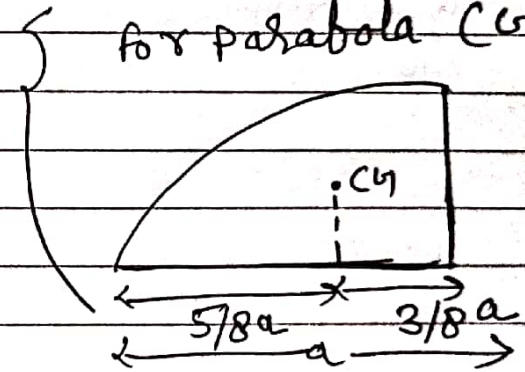 for parabola (G
CG
5/8a
3/8 a
a